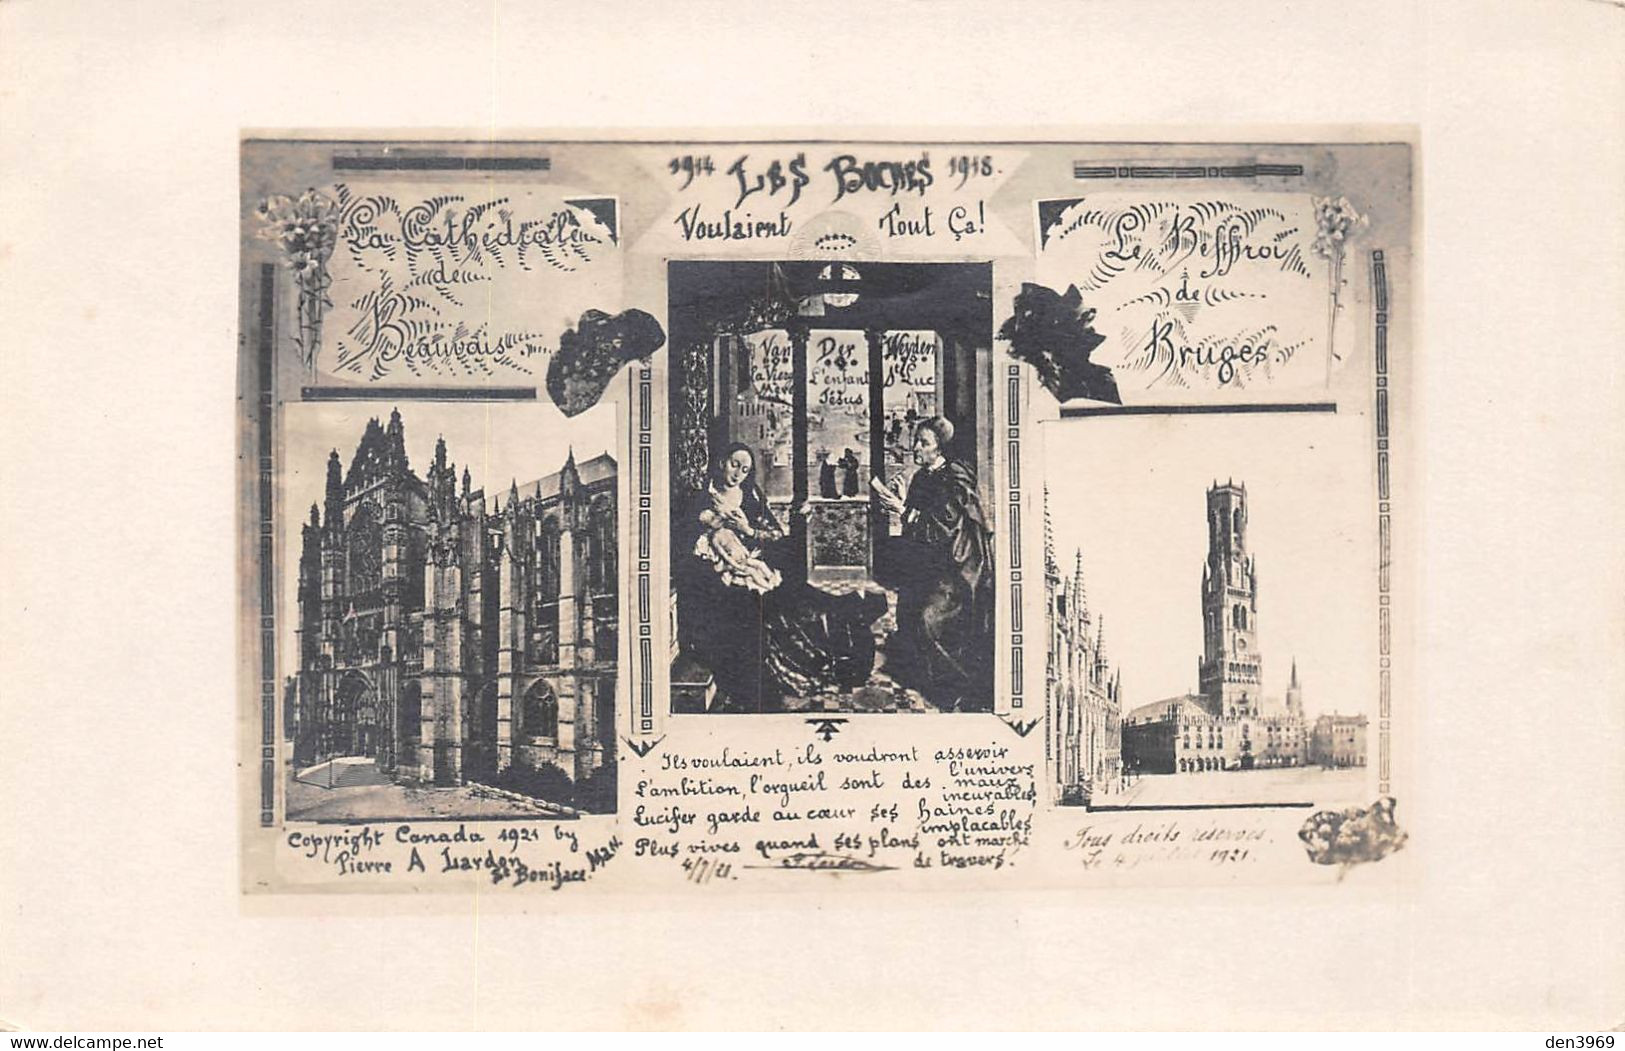 1914 LES BOCHES 1918.
Voulaient Tout Ça!
La Cathédrale
de
Beauvais
Le Beffroi
de
Bruges
Van Der Weyden
la Vierge L'enfant St Luc
Mère Jésus
Ils voulaient, ils voudront asservir l'univers
L'ambition, l'orgueil sont des maux incurables,
Lucifer garde au cœur ses haines implacables
Plus vives quand ses plans ont marché de travers.
4/7/21.
Copyright Canada 1921 by
Pierre A Lardon
St Boniface. Man.
Tous droits réservés.
Le 4 juillet 1921.
www.delcampe.net
den3969